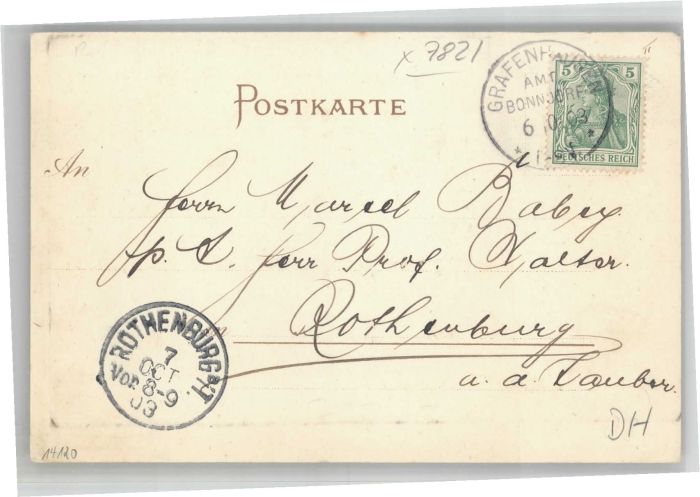 x 7821
GRAFENHAUSEN
AMT
BONNDORF
6 10 03
5 5
DEUTSCHES REICH
POSTKARTE
An
Herrn Marcel Rabey
p. A. Herr Prof. Walter.
Rothenburg
a. d. Tauber.
ROTHENBURG a/T.
7
OCT
Vor. 8-9
03
DH
14120